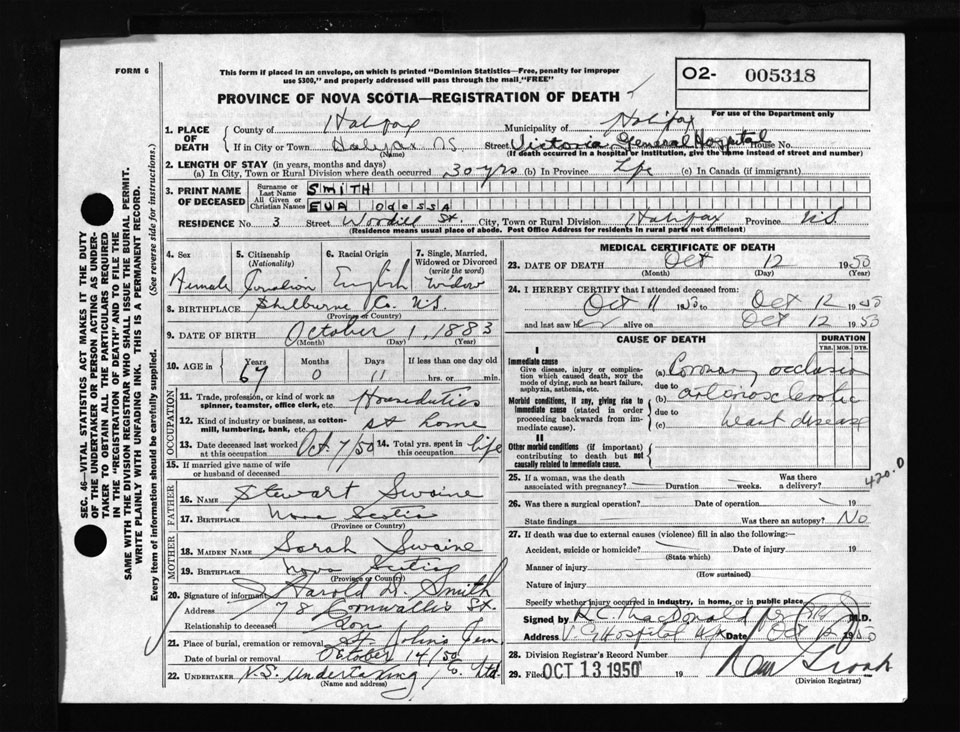 FORM 6
This form if placed in an envelope, on which is printed "Dominion Statistics—Free, penalty for improper
use $300," and properly addressed will pass through the mail "FREE"
O2- 005318
PROVINCE OF NOVA SCOTIA—REGISTRATION OF DEATH
For use of the Department only
1. PLACE OF DEATH { County of Halifax Municipality of Halifax
If in City or Town Halifax NS Street Victoria General Hospital House No.
(Name) (If death occurred in a hospital or institution, give the name instead of street and number)
2. LENGTH OF STAY (in years, months and days)
(a) In City, Town or Rural Division where death occurred 30 yrs (b) In Province Life (c) In Canada (if immigrant)
3. PRINT NAME OF DECEASED { Surname or Last Name SMITH
All Given or Christian Names EVA Odessa
RESIDENCE No. 3 Street Woodill St. City, Town or Rural Division Halifax Province N.S.
(Residence means usual place of abode. Post Office Address for residents in rural parts not sufficient)
4. Sex 5. Citizenship (Nationality) 6. Racial Origin 7. Single, Married, Widowed or Divorced (write the word)
Female Canadian English Widow
8. BIRTHPLACE Shelburne Co. N.S.
(Province or Country)
9. DATE OF BIRTH October 1, 1883
(Month) (Day) (Year)
10. AGE in { Years Months Days If less than one day old
67 0 11 hrs. or min.
OCCUPATION
11. Trade, profession, or kind of work as spinner, teamster, office clerk, etc. Houseduties
12. Kind of industry or business, as cotton-mill, lumbering, bank, etc. at home
13. Date deceased last worked at this occupation Oct. 7/50 14. Total yrs. spent in this occupation life
15. If married give name of wife or husband of deceased
FATHER
16. NAME Stewart Swaine
17. BIRTHPLACE Nova Scotia
(Province or Country)
MOTHER
18. MAIDEN NAME Sarah Swaine
19. BIRTHPLACE Nova Scotia
(Province or Country)
20. Signature of informant Harold D. Smith
Address 78 Cornwallis St.
Relationship to deceased Son
21. Place of burial, cremation or removal St. John's Cem
Date of burial or removal October 14/50
22. UNDERTAKER N.S. Undertaking Co. Ltd.
(Name and address)
MEDICAL CERTIFICATE OF DEATH
23. DATE OF DEATH Oct 12 1950
(Month) (Day) (Year)
24. I HEREBY CERTIFY that I attended deceased from:
Oct 11 1950 to Oct 12 1950
and last saw her alive on Oct 12 1950
CAUSE OF DEATH DURATION
YRS. MOS. DYS.
I
Immediate cause
Give disease, injury or complication which caused death, not the mode of dying, such as heart failure, asphyxia, asthenia, etc.
(a) Coronary occlusion
due to
Morbid conditions, if any, giving rise to immediate cause (stated in order proceeding backwards from immediate cause).
(b) arteriosclerotic
due to
(c) heart disease
II
Other morbid conditions (if important) contributing to death but not causally related to immediate cause.
420.0
25. If a woman, was the death associated with pregnancy? Duration weeks. Was there a delivery?
26. Was there a surgical operation? Date of operation 19
State findings Was there an autopsy? No
27. If death was due to external causes (violence) fill in also the following:—
Accident, suicide or homicide? Date of injury 19
(State which)
Manner of injury
(How sustained)
Nature of injury
Specify whether injury occurred in industry, in home, or in public place
Signed by R.C. MacDonald M.D.
Address V.G. Hospital Hfx Date Oct 12 1950
28. Division Registrar's Record Number
29. Filed OCT 13 1950 19
(Division Registrar)
SEC. 46—VITAL STATISTICS ACT MAKES IT THE DUTY
OF THE UNDERTAKER OR PERSON ACTING AS UNDER-
TAKER TO OBTAIN ALL THE PARTICULARS REQUIRED
IN THE "REGISTRATION OF DEATH" AND TO FILE THE
SAME WITH THE DIVISION REGISTRAR WHO SHALL ISSUE THE BURIAL PERMIT.
WRITE PLAINLY WITH UNFADING INK. THIS IS A PERMANENT RECORD.
Every item of information should be carefully supplied. (See reverse side for instructions.)